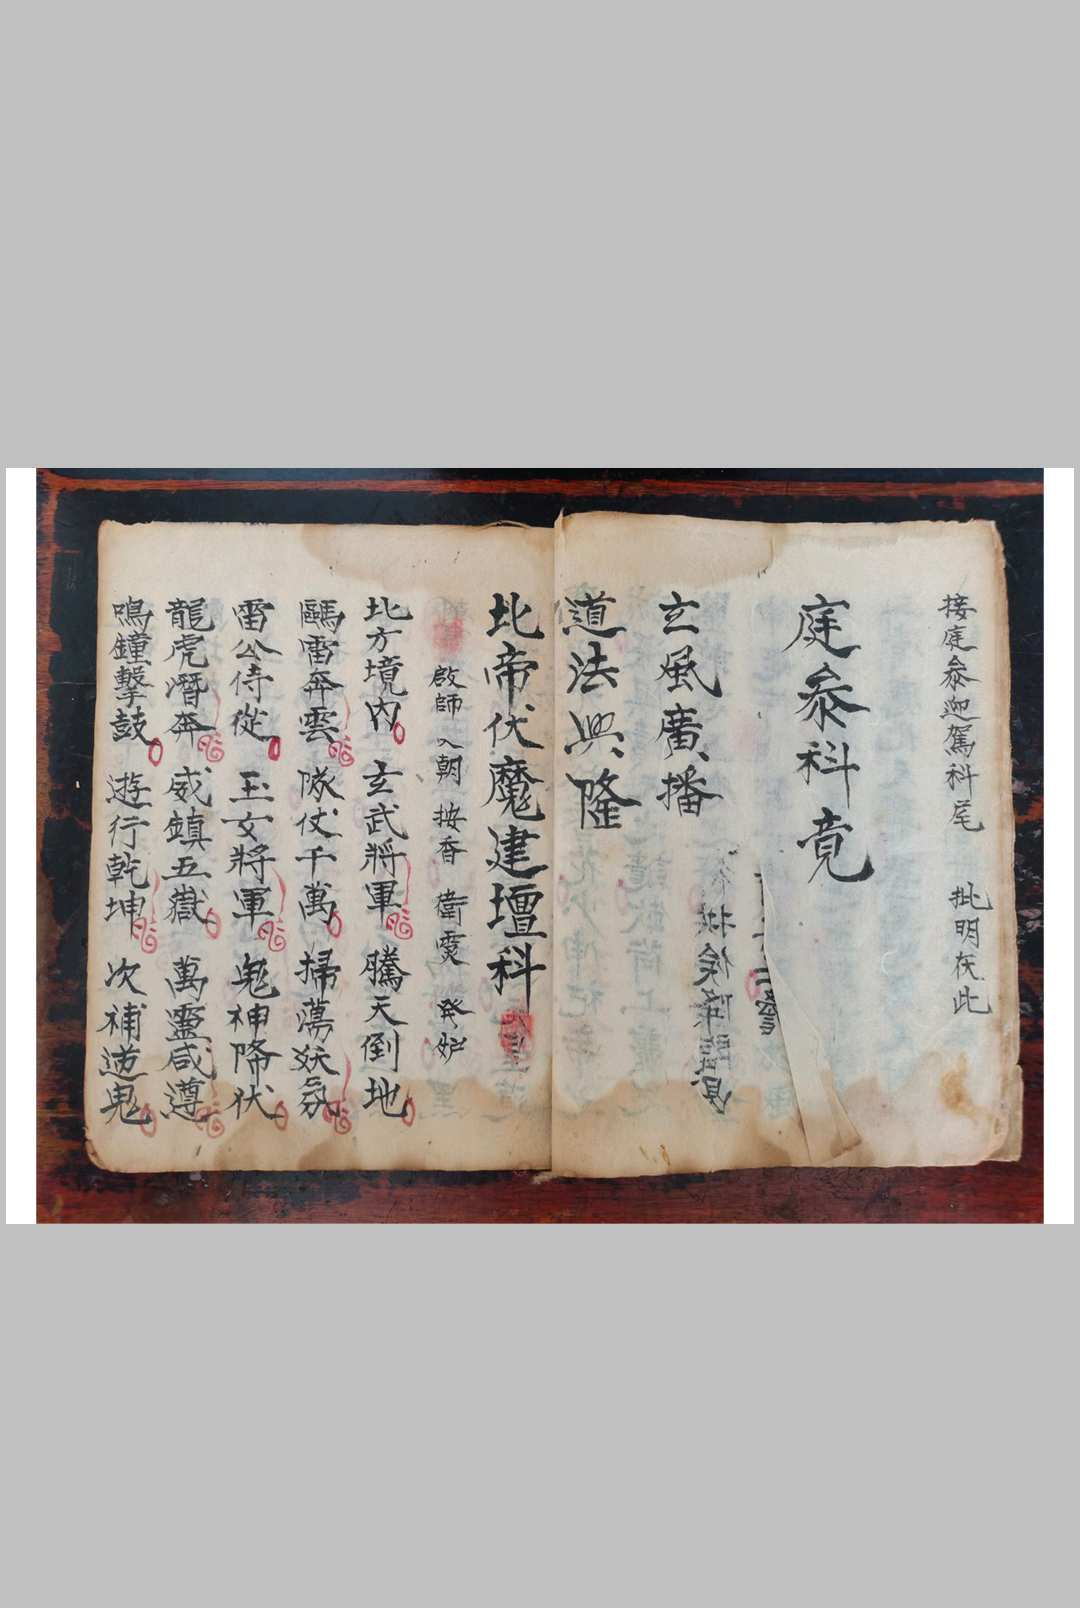 接庭叅迎駕科尾 批明在此
庭叅科竟
玄風廣播
道法興隆
北帝伏魔建壇科
啟師 入朝 按香 衛靈 發炉
北方境内 玄武將軍 騰天倒地
雷奔雲 隊仗千萬 掃蕩妖氛
雷公侍從 玉女將軍 鬼神降伏
龍虎潛奔 威鎮五嶽 萬靈咸遵
鳴鐘擊鼓 遊行乾坤 次補逆鬼